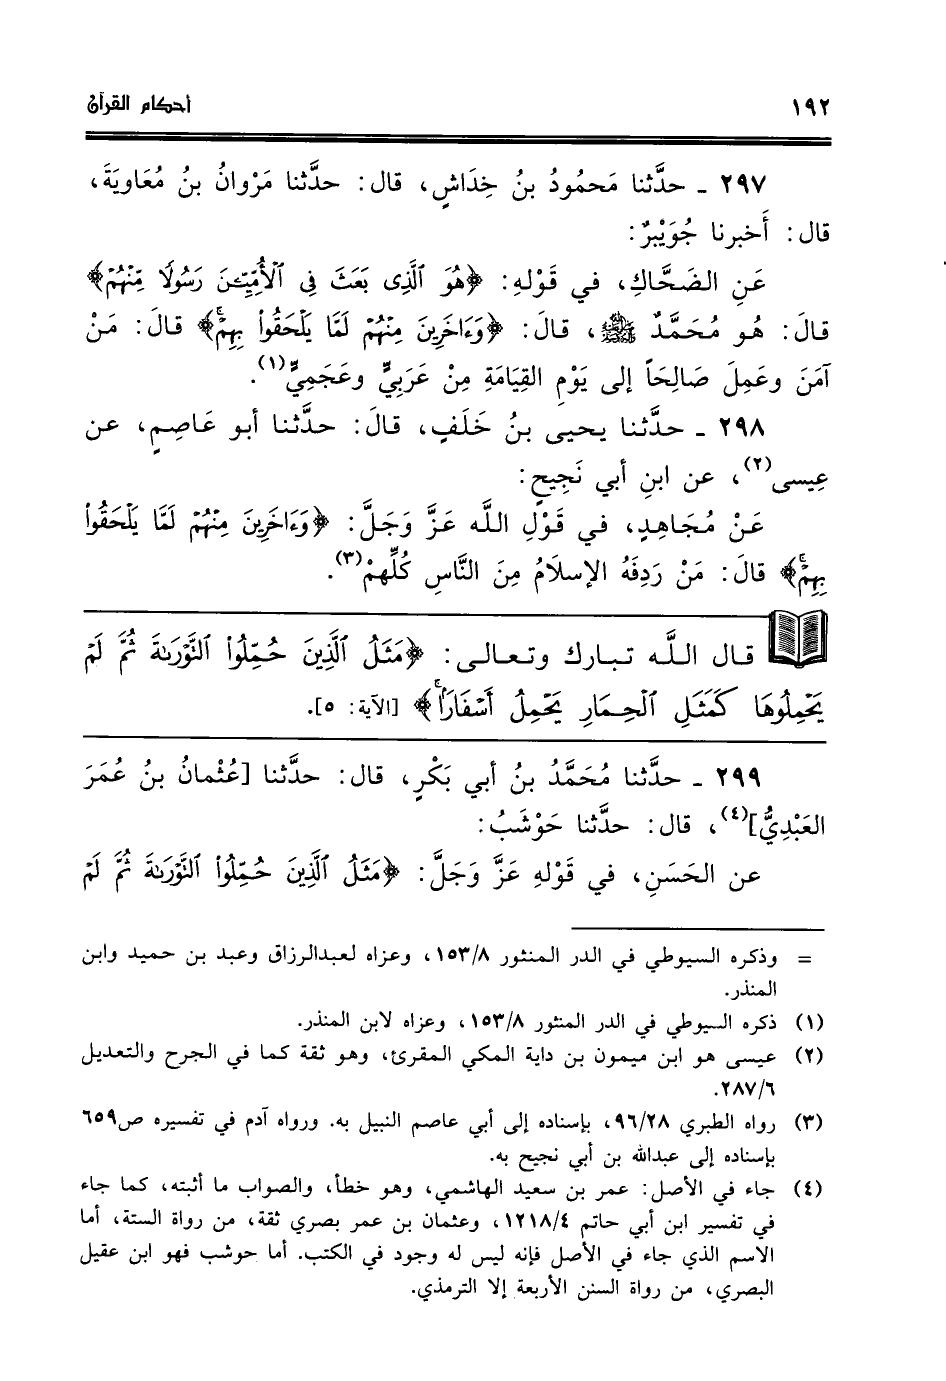 ١٩٢ أحكام القرآن
٢٩٧ ـ حدَّثنا مَحمُودُ بنُ خِدَاشٍ، قال: حدَّثنا مَرْوانُ بنُ مُعَاويَةَ،
قال: أَخبرنا جُوَيْبرٌ:
عَنِ الضَحَّاكِ، في قَوْلهِ: ﴿هُوَ ٱلَّذِى بَعَثَ فِى ٱلْأُمِّيِّـۧنَ رَسُولًا مِّنْهُمْ﴾
قالَ: هُو مُحَمَّدٌ ﷺ، قالَ: ﴿وَءَاخَرِينَ مِنْهُمْ لَمَّا يَلْحَقُوا۟ بِهِمْ ۚ﴾ قالَ: مَنْ
آمَنَ وعَمِلَ صَالِحَاً إلى يَوْمِ القِيَامَةِ مِنْ عَرَبيٍّ وعَجَمِيٍّ(١).
٢٩٨ ـ حدَّثنا يحيى بنُ خَلَفٍ، قالَ: حدَّثنا أبو عَاصِمٍ، عن
عِيسى(٢)، عن ابنِ أبي نَجِيحٍ:
عَنْ مُجَاهِدٍ، في قَوْلِ اللَّه عَزَّ وَجَلَّ: ﴿وَءَاخَرِينَ مِنْهُمْ لَمَّا يَلْحَقُوا۟
بِهِمْ ۚ﴾ قالَ: مَنْ رَدِفَهُ الإسلاَمُ مِنَ النَّاسِ كُلِّهمْ(٣).
قال اللَّه تبارك وتعالى: ﴿مَثَلُ ٱلَّذِينَ حُمِّلُوا۟ ٱلتَّوْرَىٰةَ ثُمَّ لَمْ
يَحْمِلُوهَا كَمَثَلِ ٱلْحِمَارِ يَحْمِلُ أَسْفَارًۢا ۚ﴾ [الآية: ٥].
٢٩٩ ـ حدَّثنا مُحَمَّدُ بنُ أبي بَكْرٍ، قال: حدَّثنا [عُثْمانُ بنُ عُمَرَ
العَبْدِيُّ](٤)، قال: حدَّثنا حَوْشَبُ:
عن الحَسَنِ، في قَوْلهِ عَزَّ وَجَلَّ: ﴿مَثَلُ ٱلَّذِينَ حُمِّلُوا۟ ٱلتَّوْرَىٰةَ ثُمَّ لَمْ
= وذكره السيوطي في الدر المنثور ١٥٣/٨، وعزاه لعبدالرزاق وعبد بن حميد وابن
المنذر.
(١) ذكره السيوطي في الدر المنثور ١٥٣/٨، وعزاه لابن المنذر.
(٢) عيسى هو ابن ميمون بن داية المكي المقرئ، وهو ثقة كما في الجرح والتعديل
٢٨٧/٦.
(٣) رواه الطبري ٩٦/٢٨، بإسناده إلى أبي عاصم النبيل به. ورواه آدم في تفسيره ص٦٥٩
بإسناده إلى عبدالله بن أبي نجيح به.
(٤) جاء في الأصل: عمر بن سعيد الهاشمي، وهو خطأ، والصواب ما أثبته، كما جاء
في تفسير ابن أبي حاتم ١٢١٨/٤، وعثمان بن عمر بصري ثقة، من رواة الستة، أما
الاسم الذي جاء في الأصل فإنه ليس له وجود في الكتب. أما حوشب فهو ابن عقيل
البصري، من رواة السنن الأربعة إلا الترمذي.